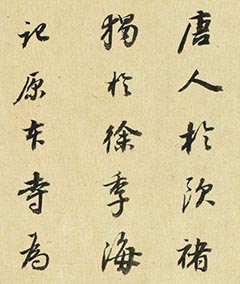 唐人於欧褚
獨於徐季海
記原寺為